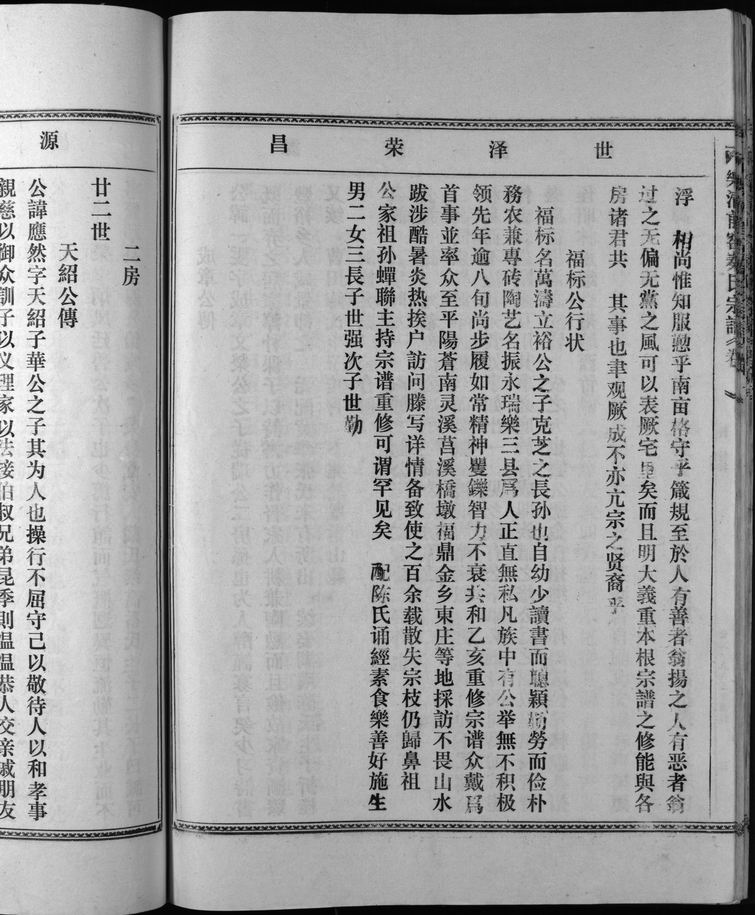 世泽荣昌
浮 相尚惟知服懃乎南亩格守乎箴規至於人有善者翁揚之人有恶者翁
过之无偏无黨之风可以表厥宅里矣而且明大義重本根宗譜之修能與各
房诸君共 其事也聿观厥成不亦亢宗之贤裔乎
福标公行状
福标名萬濤立裕公之子克芝之長孙也自幼少讀書而聰颖勤勞而俭朴
務农兼專砖陶艺名振永瑞樂三县爲人正直無私凡族中有公举無不积极
领先年逾八旬尚步履如常精神矍鑠智力不衰共和乙亥重修宗谱众戴爲
首事並率众至平陽蒼南灵溪莒溪橋墩福鼎金乡東庄等地採訪不畏山水
跋涉酷暑炎热挨户訪问謄写详情备致使之百余载散失宗枝仍歸鼻祖
公家祖孙蟬聯主持宗谱重修可谓罕见矣 配陈氏诵經素食樂善好施生
男二女三長子世强次子世勤
源
二房
廿二世
天紹公傳
公諱應然字天紹子華公之子其为人也操行不屈守己以敬待人以和孝事
親慈以御众訓子以义理家以法接伯叔兄弟昆季則温温恭人交亲戚朋友